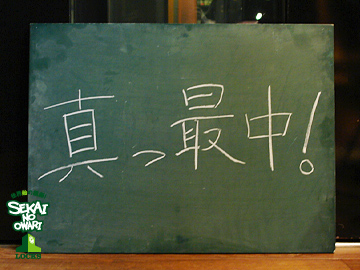 真っ最中!
SEKAI
NO
OWARI
LOCKS!